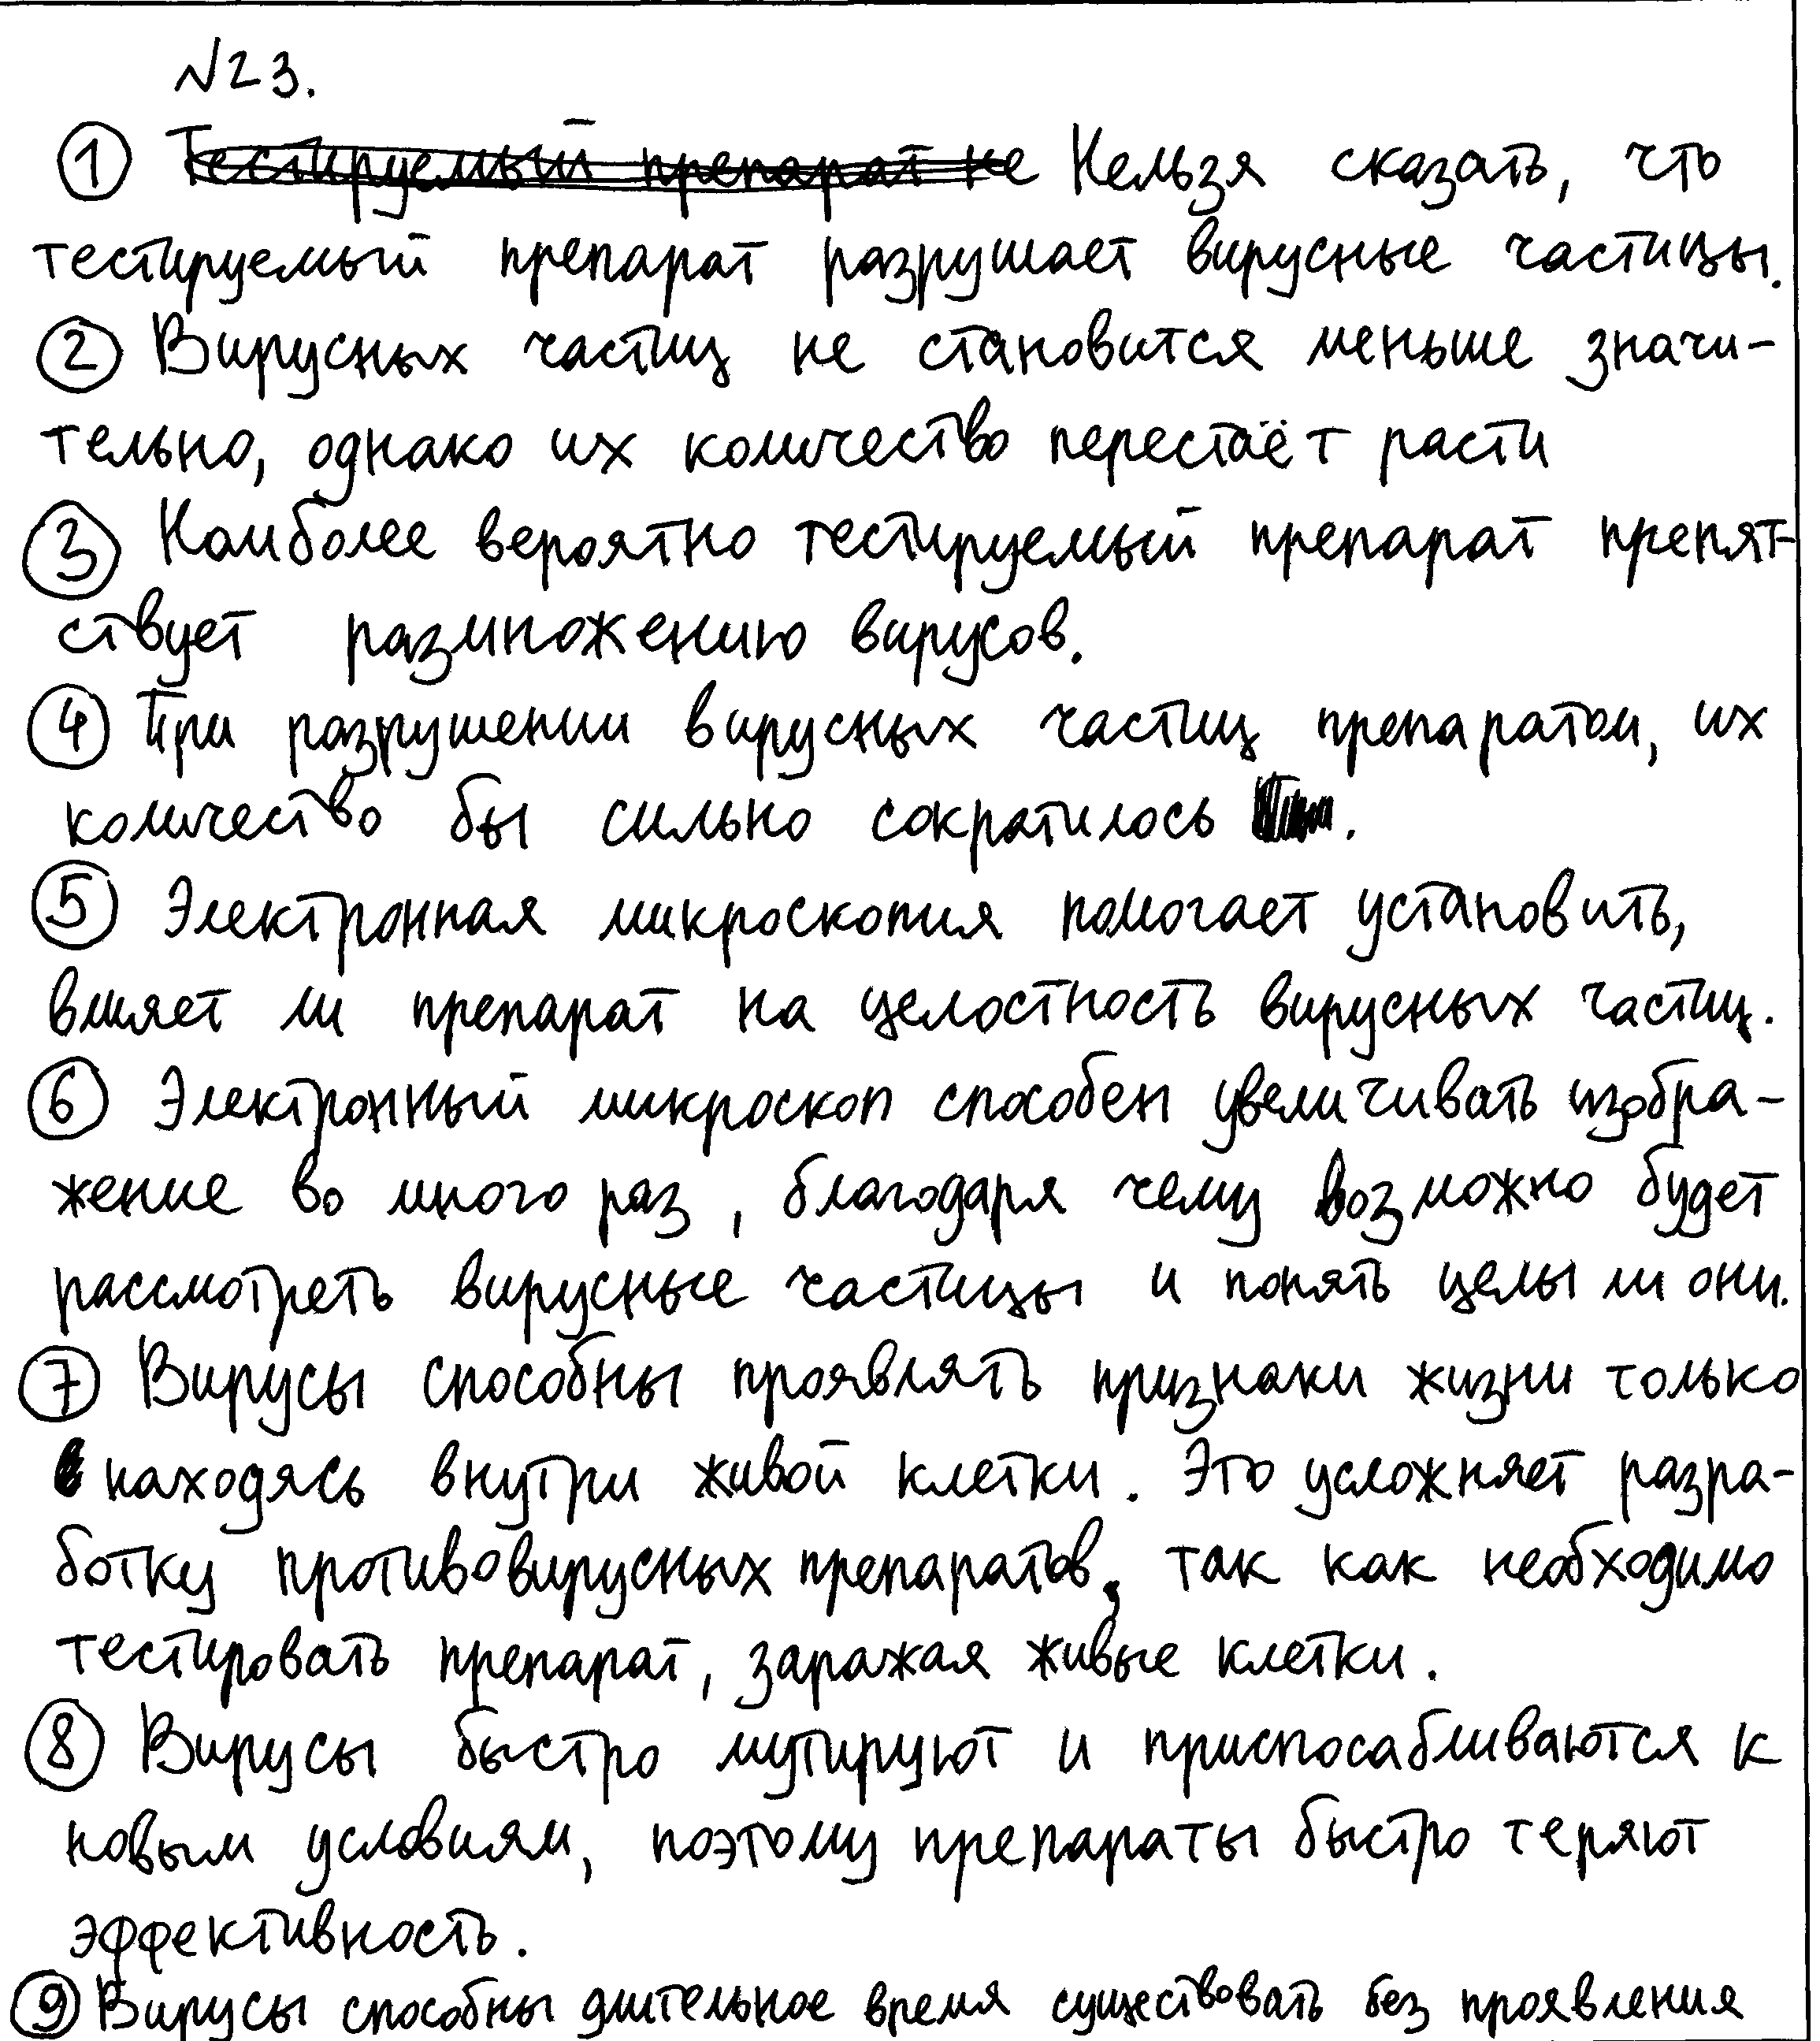 №23.
① Тестируемый препарат не Нельзя сказать, что
тестируемый препарат разрушает вирусные частицы.
② Вирусных частиц не становится меньше значи-
тельно, однако их количество перестаёт расти
③ Наиболее вероятно тестируемый препарат препят-
ствует размножению вирусов.
④ При разрушении вирусных частиц препаратом, их
количество бы сильно сократилось .
⑤ Электронная микроскопия помогает установить,
влияет ли препарат на целостность вирусных частиц.
⑥ Электронный микроскоп способен увеличивать изобра-
жение во много раз, благодаря чему возможно будет
рассмотреть вирусные частицы и понять целы ли они.
⑦ Вирусы способны проявлять признаки жизни только
находясь внутри живой клетки. Это усложняет разра-
ботку противовирусных препаратов, так как необходимо
тестировать препарат, заражая живые клетки.
⑧ Вирусы быстро мутируют и приспосабливаются к
новым условиям, поэтому препараты быстро теряют
эффективность.
⑨ Вирусы способны длительное время существовать без проявления